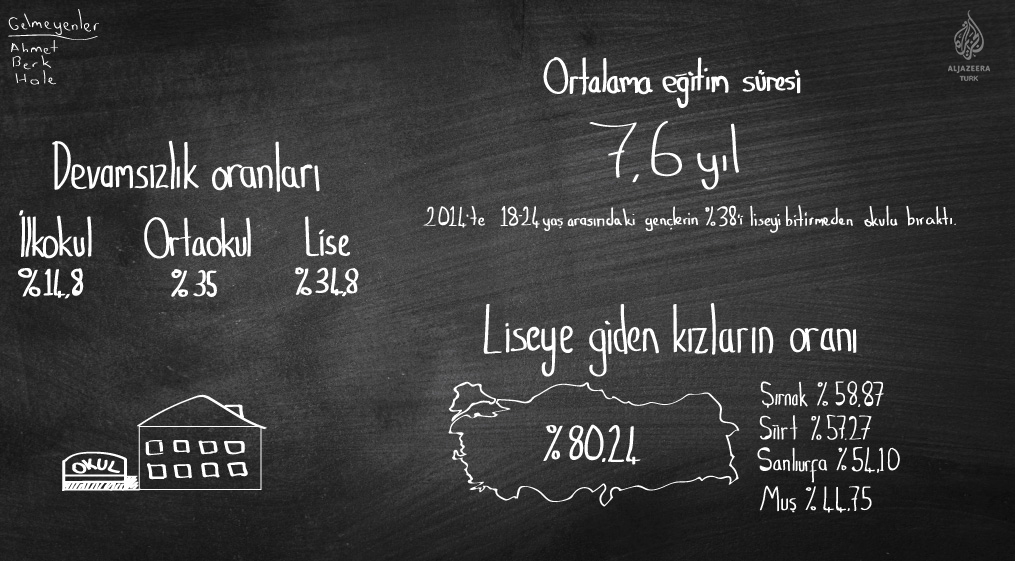 Gelmeyenler
Ahmet
Berk
Hale
ALJAZEERA
TURK
Ortalama eğitim süresi
7,6 yıl
2014'te 18-24 yaş arasındaki gençlerin %38'i liseyi bitirmeden okulu bıraktı.
Devamsızlık oranları
İlkokul Ortaokul Lise
%14,8 %35 %34,8
Liseye giden kızların oranı
%80.24
Şırnak %58,87
Siirt %57.27
Sanlıurfa %54,10
Muş %44.75
OKUL